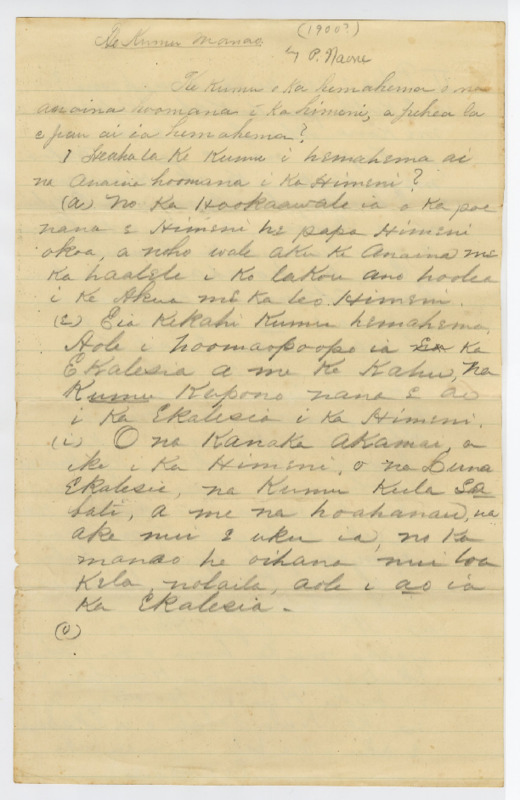 (1900?)
He Kumu Manao.
by P. Naone
Ke Kumu o ka hemahema o na
anaina hoomana i ka himeni, a pehea la
e pau ai ia hemahema?
1 Heaha la Ke Kumu i hemahema ai
na Anaina hoomana i Ka Himeni?
(a) No Ka Hookaawale ia o Ka poe
nana e Himeni he papa Himeni
okoa, a noho wale aku Ke Anaina me
Ka haalele i Ko lakou ano hoolea
i Ke Akua me Ka leo Himeni.
(e) Eia Kekahi Kumu hemahema,
Aole i hoomaopoopo ia Ka
Ekalesia a me Ke Kahu, na
Kumu Kupono nana e ao
i Ka Ekalesia i Ka Himeni.
(i) O na Kanaka akamai, a
ike i Ka Himeni, o na Luna
Ekalesie, na Kumu Kula Sa
bati, a me na hoahanau, ua
ake nui e uku ia, no Ka
manao he oihana nui loa
Kela, nolaila, aole i ao ia
Ka Ekalesia.
(o)